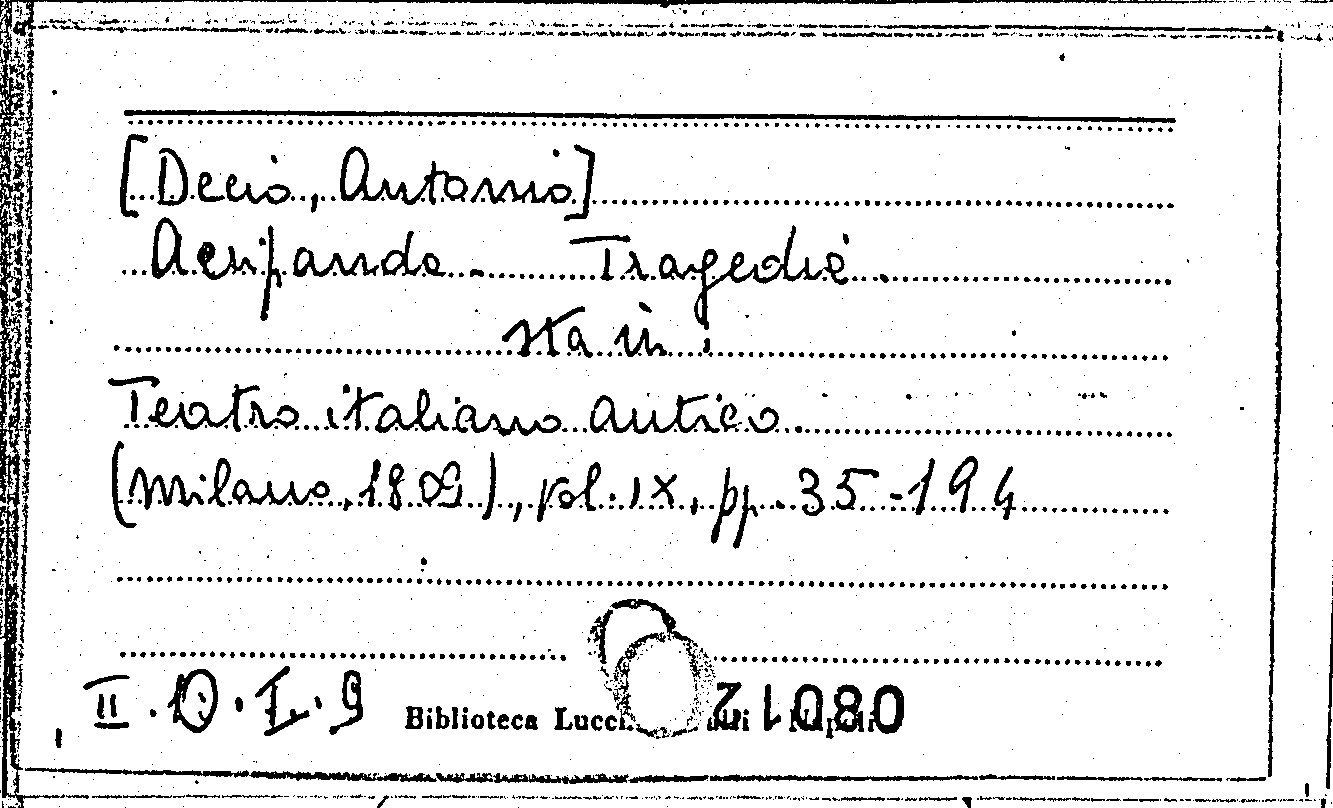 [Decio, Antonio]
Acripanda - Tragedia.
sta in:
Teatro italiano antico.
(Milano, 1809), vol. IX, pp. 35-194
II. 10. I. 9 Biblioteca